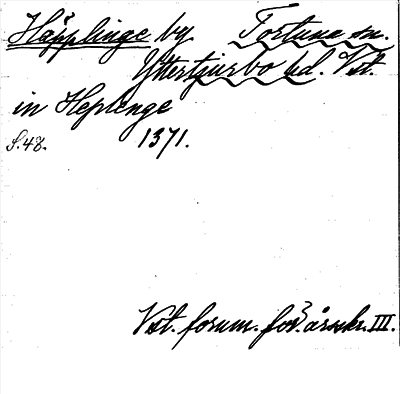 Häpplinge by Tortuna sn.
Yttertjurbo hd. Vst.
in Heplenge
S. 48. 1371.
Vst. forum. för:s årsskr. III.